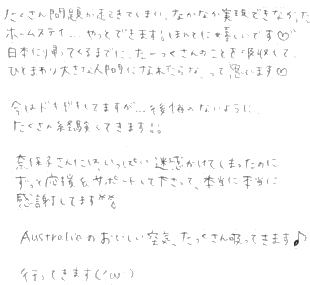 たくさん問題が出てきてしまい、なかなか実現できなかった
ホームステイ…やっとできます!ほんとに嬉しいです♡
日本に帰ってくるまでに、たーっくさんのことを吸収して
ひとまわり大きな人間になれたらな、って思います♡
今はドキドキしてますが…後悔のないように、
たくさん経験してきます!!
奈保子さんには、いっぱい迷惑かけてしまったのに
ずっと応援&サポートして下さって、本当に本当に
感謝してます
Australiaのおいしい空気、たっくさん吸ってきます♪
行ってきます(´ω`)